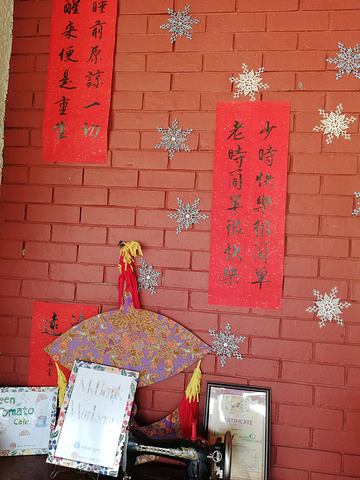 睡前原諒一切
醒來便是重生
少時快樂很簡單
老時簡單很快樂
遠
een
Tomato
Cafe
CERTIFICATE